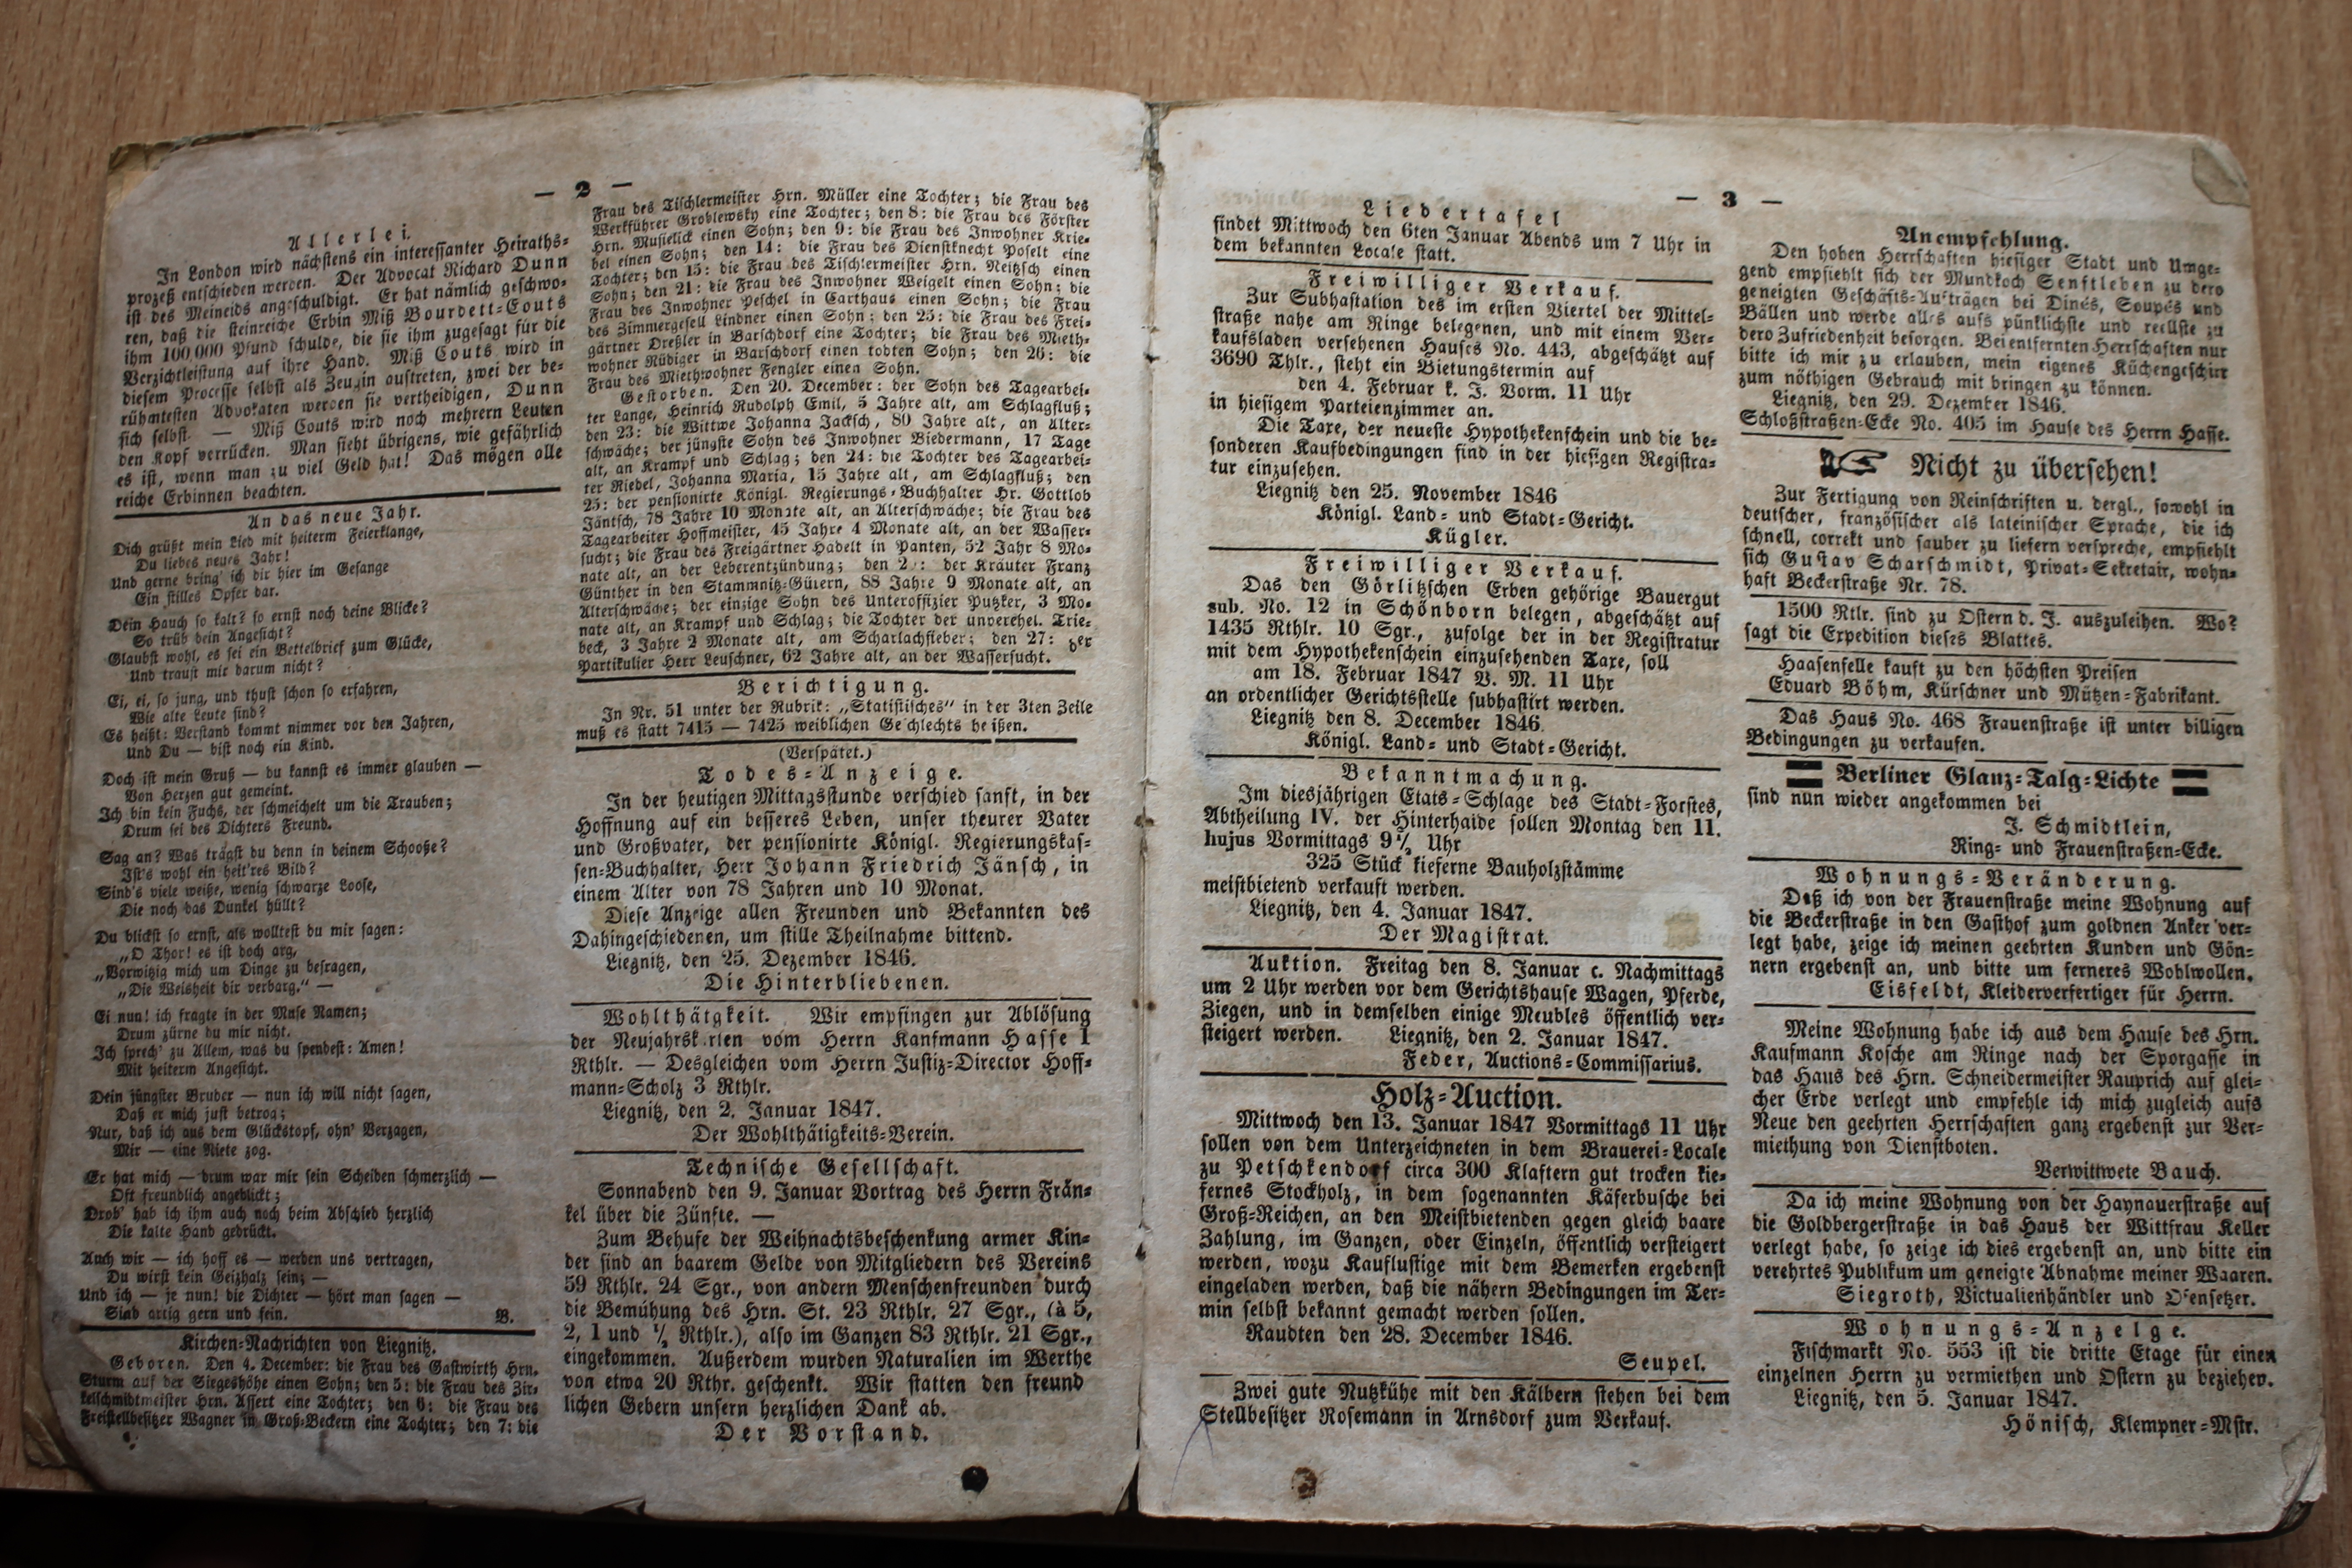 — 2 —
Allerlei.
In London wird nächstens ein interessanter Heiraths-
prozeß entschieden werden. Der Advocat Richard Dunn
ist des Meineids angeschuldigt. Er hat nämlich geschwo-
ren, daß die steinreiche Erbin Miß Bourdett-Couts
ihm 100,000 Pfund schulde, die sie ihm zugesagt für die
Verzichtleistung auf ihre Hand. Miß Couts wird in
diesem Processe selbst als Zeugin auftreten, zwei der be-
rühmtesten Advokaten werden sie vertheidigen, Dunn
sich selbst. — Miß Couts wird noch mehrern Leuten
den Kopf verrücken. Man sieht übrigens, wie gefährlich
es ist, wenn man zu viel Geld hat! Das mögen alle
reiche Erbinnen beachten.
An das neue Jahr.
Dich grüßt mein Lied mit heiterm Feierklange,
Du liebes neues Jahr!
Und gerne bring' ich dir hier im Gesange
Ein stilles Opfer dar.
Dein Hauch so kalt? so ernst noch deine Blicke?
So trüb dein Angesicht?
Glaubst wohl, es sei ein Bettelbrief zum Glücke,
Und traust mir darum nicht?
Ei, ei, so jung, und thust schon so erfahren,
Wie alte Leute sind?
Es heißt: Verstand kommt nimmer vor den Jahren,
Und Du — bist noch ein Kind.
Doch ist mein Gruß — du kannst es immer glauben —
Von Herzen gut gemeint.
Ich bin kein Fuchs, der schmeichelt um die Trauben;
Drum sei des Dichters Freund.
Sag an? Was trägst du denn in deinem Schooße?
Ist's wohl ein heit'res Bild?
Sind's viele weiße, wenig schwarze Loose,
Die noch das Dunkel hüllt?
Du blickst so ernst, als wolltest du mir sagen:
„O Thor! es ist doch arg,
„Vorwitzig mich um Dinge zu befragen,
„Die Weisheit dir verbarg." —
Ei nun! ich fragte in der Muse Namen;
Drum zürne du mir nicht.
Ich sprech' zu Allem, was du spendest: Amen!
Mit heiterm Angesicht.
Dein jüngster Bruder — nun ich will nicht sagen,
Daß er mich just betrog;
Nur, daß ich aus dem Glückstopf, ohn' Verzagen,
Mir — eine Niete zog.
Er hat mich — drum war mir sein Scheiden schmerzlich —
Oft freundlich angeblickt;
Drob' hab ich ihm auch noch beim Abschied herzlich
Die kalte Hand gedrückt.
Auch wir — ich hoff es — werden uns vertragen,
Du wirst kein Geizhalz sein; —
Und ich — je nun! die Dichter — hört man sagen —
Sind artig gern und fein. B.
Kirchen-Nachrichten von Liegnitz.
Geboren. Den 4. December: die Frau des Gastwirth Hrn.
Sturm auf der Siegeshöhe einen Sohn; den 5: die Frau des Zir-
kelschmidtmeister Hrn. Assert eine Tochter; den 6: die Frau des
Freistellbesitzer Wagner in Groß-Beckern eine Tochter; den 7: die
Frau des Tischlermeister Hrn. Müller eine Tochter; die Frau des
Werkführer Groblewsky eine Tochter; den 8: die Frau des Förster
Hrn. Musielick einen Sohn; den 9: die Frau des Inwohner Krie-
bel einen Sohn; den 14: die Frau des Dienstknecht Poselt eine
Tochter; den 15: die Frau des Tischlermeister Hrn. Neitzsch einen
Sohn; den 21: die Frau des Inwohner Weigelt einen Sohn; die
Frau des Inwohner Peschel in Carthaus einen Sohn; die Frau
des Zimmergesell Lindner einen Sohn; den 25: die Frau des Frei-
gärtner Dreßler in Barschdorf eine Tochter; die Frau des Mieth-
wohner Rüdiger in Barschdorf einen todten Sohn; den 26: die
Frau des Miethwohner Fengler einen Sohn.
Gestorben. Den 20. December: der Sohn des Tagearbei-
ter Lange, Heinrich Rudolph Emil, 5 Jahre alt, am Schlagfluß;
den 23: die Wittwe Johanna Jacksch, 80 Jahre alt, an Alter-
schwäche; der jüngste Sohn des Inwohner Biedermann, 17 Tage
alt, an Krampf und Schlag; den 24: die Tochter des Tagearbei-
ter Riedel, Johanna Maria, 15 Jahre alt, am Schlagfluß; den
25: der pensionirte Königl. Regierungs-Buchhalter Hr. Gottlob
Jäntsch, 78 Jahre 10 Monate alt, an Alterschwäche; die Frau des
Tagearbeiter Hoffmeister, 45 Jahre 4 Monate alt, an der Wasser-
sucht; die Frau des Freigärtner Hadelt in Panten, 52 Jahr 8 Mo-
nate alt, an der Leberentzündung; den der Kräuter Franz
Günther in den Stammnitz-Gütern, 88 Jahre 9 Monate alt, an
Alterschwäche; der einzige Sohn des Unteroffizier Putzker, 3 Mo-
nate alt, an Krampf und Schlag; die Tochter der unverehel. Trie-
beck, 3 Jahre 2 Monate alt, am Scharlachfieber; den 27: der
Partikulier Herr Leuschner, 62 Jahre alt, an der Wassersucht.
Berichtigung.
In Nr. 51 unter der Rubrik: „Statistisches" in der 3ten Zeile
muß es statt 7415 — 7425 weiblichen Geschlechts heißen.
(Verspätet.)
Todes-Anzeige.
In der heutigen Mittagsstunde verschied sanft, in der
Hoffnung auf ein besseres Leben, unser theurer Vater
und Großvater, der pensionirte Königl. Regierungskas-
sen-Buchhalter, Herr Johann Friedrich Jänsch, in
einem Alter von 78 Jahren und 10 Monat.
Diese Anzeige allen Freunden und Bekannten des
Dahingeschiedenen, um stille Theilnahme bittend.
Liegnitz, den 25. Dezember 1846.
Die Hinterbliebenen.
Wohlthätgkeit. Wir empfingen zur Ablösung
der Neujahrskarten vom Herrn Kaufmann Hasse 1
Rthlr. — Desgleichen vom Herrn Justiz-Director Hoff-
mann-Scholz 3 Rthlr.
Liegnitz, den 2. Januar 1847.
Der Wohlthätigkeits-Verein.
Technische Gesellschaft.
Sonnabend den 9. Januar Vortrag des Herrn Frän-
kel über die Zünfte. —
Zum Behufe der Weihnachtsbeschenkung armer Kin-
der sind an baarem Gelde von Mitgliedern des Vereins
59 Rthlr. 24 Sgr., von andern Menschenfreunden durch
die Bemühung des Hrn. St. 23 Rthlr. 27 Sgr., (à 5,
2, 1 und ½ Rthlr.), also im Ganzen 83 Rthlr. 21 Sgr.,
eingekommen. Außerdem wurden Naturalien im Werthe
von etwa 20 Rthr. geschenkt. Wir statten den freund
lichen Gebern unsern herzlichen Dank ab.
Der Vorstand.
— 3 —
Liedertafel
findet Mittwoch den 6ten Januar Abends um 7 Uhr in
dem bekannten Locale statt.
Freiwilliger Verkauf.
Zur Subhastation des im ersten Viertel der Mittel-
straße nahe am Ringe belegenen, und mit einem Ver-
kaufsladen versehenen Hauses No. 443, abgeschätzt auf
3690 Thlr., steht ein Bietungstermin auf
den 4. Februar k. J. Vorm. 11 Uhr
in hiesigem Parteienzimmer an.
Die Taxe, der neueste Hypothekenschein und die be-
sonderen Kaufbedingungen sind in der hiesigen Registra-
tur einzusehen.
Liegnitz den 25. November 1846
Königl. Land- und Stadt-Gericht.
Kügler.
Freiwilliger Verkauf.
Das den Görlitzschen Erben gehörige Bauergut
sub. No. 12 in Schönborn belegen, abgeschätzt auf
1435 Rthlr. 10 Sgr., zufolge der in der Registratur
mit dem Hypothekenschein einzusehenden Taxe, soll
am 18. Februar 1847 V. M. 11 Uhr
an ordentlicher Gerichtsstelle subhastirt werden.
Liegnitz den 8. December 1846.
Königl. Land- und Stadt-Gericht.
Bekanntmachung.
Im diesjährigen Etats-Schlage des Stadt-Forstes,
Abtheilung IV. der Hinterhaide sollen Montag den 11.
hujus Vormittags 9½ Uhr
325 Stück kieferne Bauholzstämme
meistbietend verkauft werden.
Liegnitz, den 4. Januar 1847.
Der Magistrat.
Auktion. Freitag den 8. Januar c. Nachmittags
um 2 Uhr werden vor dem Gerichtshause Wagen, Pferde,
Ziegen, und in demselben einige Meubles öffentlich ver-
steigert werden. Liegnitz, den 2. Januar 1847.
Feder, Auctions-Commissarius.
Holz-Auction.
Mittwoch den 13. Januar 1847 Vormittags 11 Uhr
sollen von dem Unterzeichneten in dem Brauerei-Locale
zu Petschkendorf circa 300 Klaftern gut trocken kie-
fernes Stockholz, in dem sogenannten Käferbusche bei
Groß-Reichen, an den Meistbietenden gegen gleich baare
Zahlung, im Ganzen, oder Einzeln, öffentlich versteigert
werden, wozu Kauflustige mit dem Bemerken ergebenst
eingeladen werden, daß die nähern Bedingungen im Ter-
min selbst bekannt gemacht werden sollen.
Raudten den 28. December 1846.
Seupel.
Zwei gute Nutzkühe mit den Kälbern stehen bei dem
Stellbesitzer Rosemann in Arnsdorf zum Verkauf.
Anempfehlung.
Den hohen Herrschaften hiesiger Stadt und Umge-
gend empfiehlt sich der Mundkoch Senftleben zu dero
geneigten Geschäfts-Aufträgen bei Dinés, Soupés und
Bällen und werde alles aufs pünklichste und reellste zu
dero Zufriedenheit besorgen. Bei entfernten Herrschaften nur
bitte ich mir zu erlauben, mein eigenes Küchengeschirr
zum nöthigen Gebrauch mit bringen zu können.
Liegnitz, den 29. Dezember 1846.
Schloßstraßen-Ecke No. 405 im Hause des Herrn Hasse.
Nicht zu übersehen!
Zur Fertigung von Reinschriften u. dergl., sowohl in
deutscher, französischer als lateinischer Sprache, die ich
schnell, correkt und sauber zu liefern verspreche, empfiehlt
sich Gustav Scharschmidt, Privat-Sekretair, wohn-
haft Beckerstraße Nr. 78.
1500 Rtlr. sind zu Ostern d. J. auszuleihen. Wo?
sagt die Expedition dieses Blattes.
Haasenfelle kauft zu den höchsten Preisen
Eduard Böhm, Kürschner und Mützen-Fabrikant.
Das Haus No. 468 Frauenstraße ist unter billigen
Bedingungen zu verkaufen.
Berliner Glanz-Talg-Lichte
sind nun wieder angekommen bei
J. Schmidtlein,
Ring- und Frauenstraßen-Ecke.
Wohnungs-Veränderung.
Daß ich von der Frauenstraße meine Wohnung auf
die Beckerstraße in den Gasthof zum goldnen Anker ver-
legt habe, zeige ich meinen geehrten Kunden und Gön-
nern ergebenst an, und bitte um ferneres Wohlwollen.
Eisfeldt, Kleiderverfertiger für Herrn.
Meine Wohnung habe ich aus dem Hause des Hrn.
Kaufmann Kosche am Ringe nach der Sporgasse in
das Haus des Hrn. Schneidermeister Rauprich auf glei-
cher Erde verlegt und empfehle ich mich zugleich aufs
Neue den geehrten Herrschaften ganz ergebenst zur Ver-
miethung von Dienstboten.
Verwittwete Bauch.
Da ich meine Wohnung von der Haynauerstraße auf
die Goldbergerstraße in das Haus der Wittfrau Keller
verlegt habe, so zeige ich dies ergebenst an, und bitte ein
verehrtes Publikum um geneigte Abnahme meiner Waaren.
Siegroth, Victualienhändler und Ofensetzer.
Wohnungs-Anzeige.
Fischmarkt No. 553 ist die dritte Etage für einen
einzelnen Herrn zu vermiethen und Ostern zu beziehen.
Liegnitz, den 5. Januar 1847.
Hönisch, Klempner-Mstr.